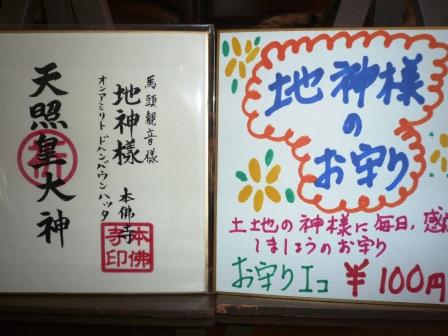 馬頭観音様
地神様
オンアミリト ドハンバウンハッタ
本佛寺
天照皇大神
本佛
寺印
地神様
の
お守り
土地の神様に毎日、感
しましょうのお守り
お守り1コ ¥100円